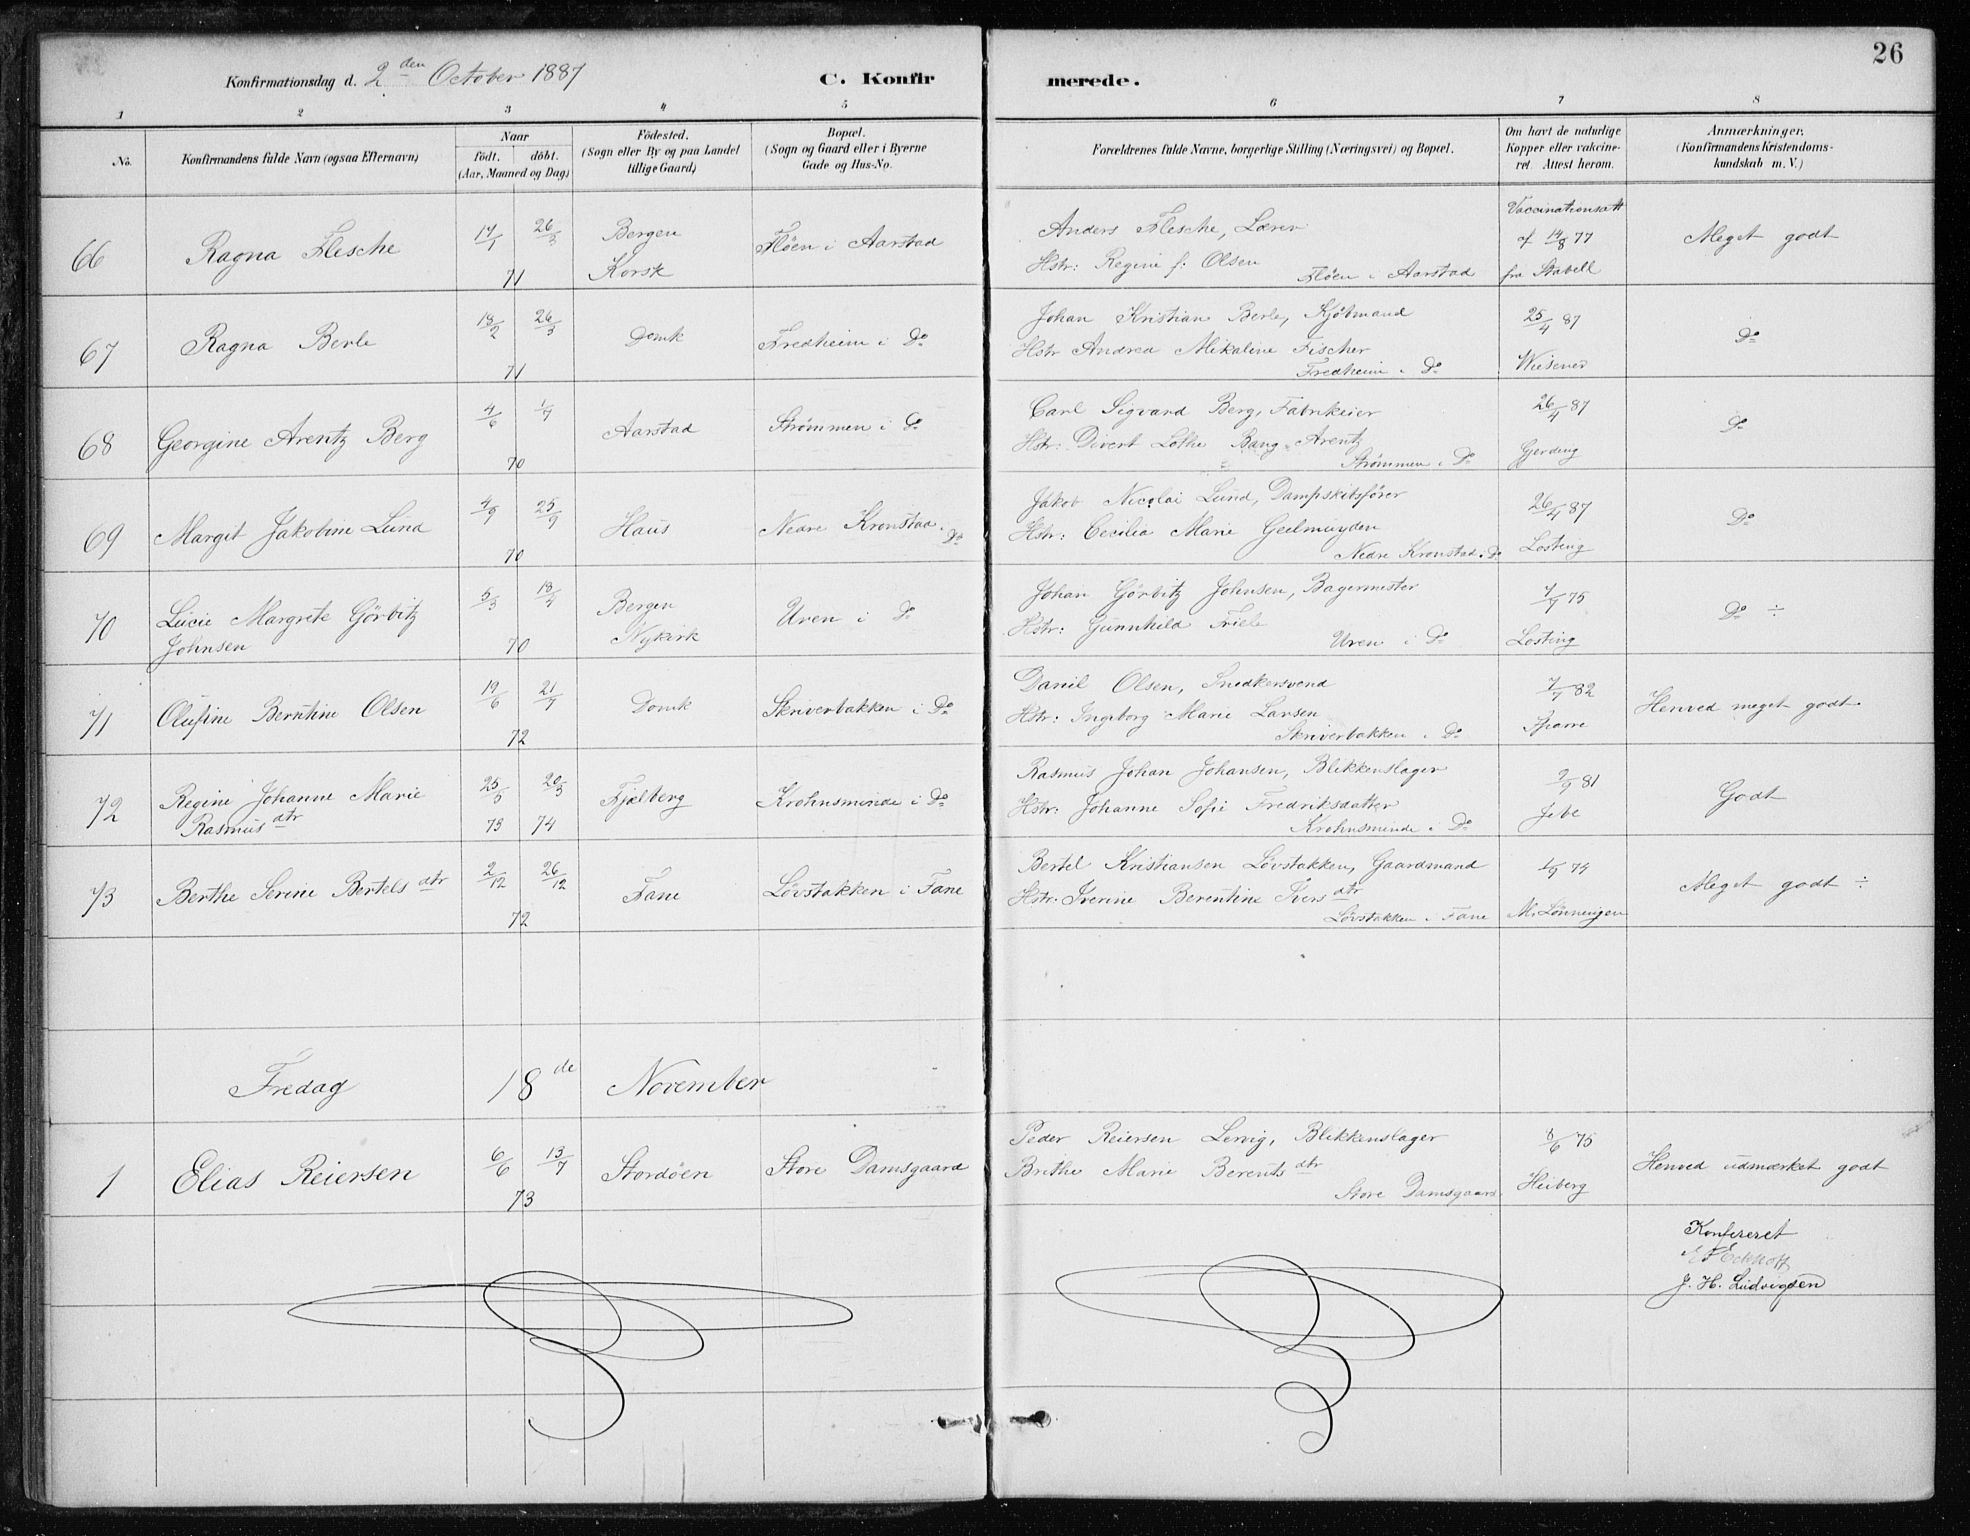 26
Konfirmationsdag d. 2den October 1887
C. Konfirmerede.
1 2 3 4 5 6 7 8
No.
Konfirmandens fulde Navn (ogsaa Efternavn)
Naar
födt. döbt.
(Aar, Maaned og Dag)
Födested.
(Sogn eller By og paa Landet
tillige Gaard)
Bopæl.
(Sogn og Gaard eller i Byerne
Gade og Hus-No.
Forældrenes fulde Navne, borgerlige Stilling (Næringsvei) og Bopæl.
Om havt de naturlige
Kopper eller vakcine-
ret. Attest herom.
Anmærkninger.
(Konfirmandens Kristendoms-
kundskab m. V.)
66 Ragna Flesche 26/3 71
Bergen
Korsk
Flöen i Aarstad
Anders Flesche, Lærer
Hstr: Regine f. Olsen
Flöen i Aarstad
Vaccinationsatt
af 14/8 77
fra Stabell
Meget godt
67 Ragna Berle 18/2 26/3 71
Domk
Fredheim i Do
Johan Kristian Berle, Kjöbmand
Hstr Andrea Mikaline Fischer
Fredheim i Do
25/4 87
Wiesener
Do
68 Georgine Arentz Berg 4/6 1/7 70
Aarstad
Strømmen i Do
Carl Sigvard Berg, Fabrikeier
Hstr: Divert Lothe Bang Arentz
Strömmen i Do
26/4 87
Gjerding
Do
69 Margit Jakobine Lund 25/9 70
Haus
Nedre Kronstad i Do
Jakob Nicolai Lund, Dampskibsfører
Hstr: Cecilia Marie Geelmuyden
Nedre Kronstad i Do
26/4 87
Losting
Do
70 Lucie Margrete Görbitz
Johnsen
5/3 18/4 70
Bergen
Nykirk
Uren i Do
Johan Görbitz Johnsen, Bagermester
Hstr: Gunnhild Friele
Uren i Do
7/9 75
Losting
Do ÷
71 Olufine Berntine Olsen 19/6 21/7 72
Domk
Skriverbakken i Do
Danil Olsen, Snedkersvend
Hstr: Ingeborg Marie Larsen
Skriverbakken i Do
7/7 82
Sparre
Henved meget godt
72 Regine Johanne Marie
Rasmusdtr
73 74
Fjelberg
Krohnsminde i Do
Rasmus Johan Johansen, Blikkenslager
Hstr: Johanne Sofie Fredriksdatter
Krohnsminde i Do
2/9 81
Jebe
Godt
73 Berthe Serine Bertelsdtr 2/12 26/12 72
Fane
Lövstakken i Fane
Bertel Kristiansen Lövstakken, Gaardmand
Hstr: Iverine Berentine Iversdtr
Lövstakken i Fane
M. Lönningen
Meget godt ÷
Fredag 18de November
1 Elias Reiersen 6/6 13/7 73
Stordöen
Store Damsgaard
Peder Reiersen Lervig, Blikkenslager
Brithe Marie Berentsdtr
Store Damsgaard
8/6 75
Heiberg
Henved udmærket godt
Konfereret
Eckhoff
J. H. Ludvigsen